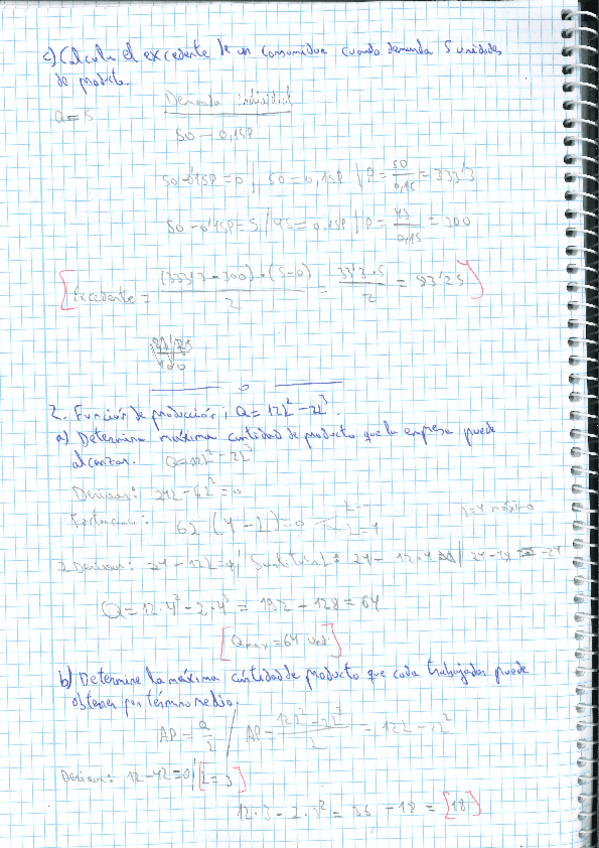 c) Calcula el excedente de un consumidor cuando demanda 5 unidades
de producto.
Q=5
Demanda individual
50 - 0,15P
50-0'15P=0 | 50=0,15P | P= 50/0,15 = 333'3
50-0'15P=5 | 45=0,15P | P= 45/0,15 = 300
[Excedente = (333'3 - 300) · (5-0) / 2 = 33'3 · 5 / 2 = 83'25]
2. Función de producción; Q = 12L² - 2L³.
a) Determina máxima cantidad de producto que la empresa puede
alcanzar. Q=12L² - 2L³
Derivamos: 24L - 6L² = 0
6L (4-L)=0 L=4
L=4 máximo
2 Derivamos: 24 - 12L
Q = 12·4² - 2·4³ = 192 - 128 = 64
[Qmax = 64 und]
b) Determine la máxima cantidad de producto que cada trabajador puede
obtener por término medio.
AP = Q/L / AP = 12L² - 2L³ / L = 12L - 2L²
Derivamos: 12-4L=0 / [L=3]
12·3 - 2·3² = 36 - 18 = [18]